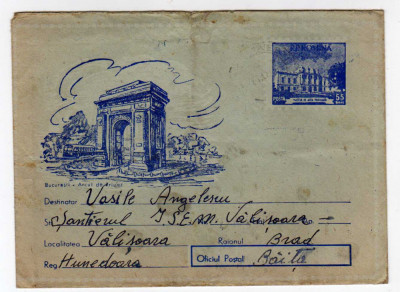 R.P.ROMINA
POSTA 55 BANI
București - Arcul de triumf
Destinatar Vasile Angelescu
Șantierul I.S.E.M. Vălișoara
Localitatea Vălișoara Raionul Brad
Reg. Hunedoara Oficiul Postal Băița